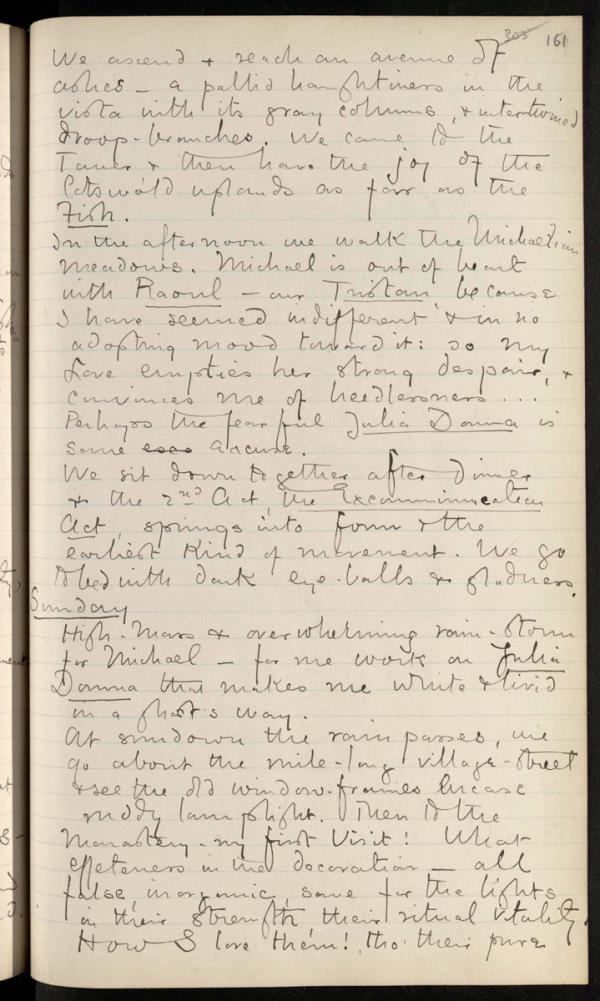 305 161
We ascend & reach an avenue of
ashes – a pallid haughtiness in the
vista with its gray columns, & intertwined
droop-branches. We came to the
Tower & then have the joy of the
Cotswold uplands as far as the
Fish.
In the afternoon we walk the Michaelian
meadows. Michael is out of heart
with Raoul – our Tristan because
I have seemed indifferent & in no
adopting mood toward it: so my
Love empties her strong despair, &
convinces me of heedlessness ...
Perhaps the fearful Julia Domna is
some excuse.
We sit down together after dinner
& the 2nd Act, the Excommunication
Act, springs into form & the
earliest kind of movement. We go
to bed with dark eye-balls & gladness.
Sunday
High-Mass & overwhelming rain-storm
for Michael – for me work on Julia
Domna that makes me white & livid
in a ghost's way.
At sundown the rain passes, we
go about the mile-long village-street
& see the old window-frames encase
ruddy lamplight. Then to the
Monastery – my first Visit! What
effeteness in the decoration – all
false, inorganic, save for the lights
in their strength their ritual vitality.
How I love them! tho' their pure